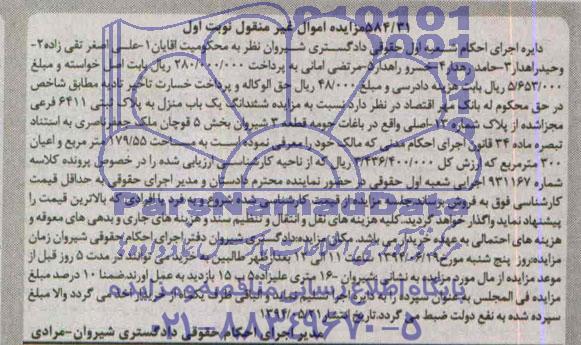 ۵۸۴/۳۱مزایده اموال غیر منقول نوبت اول
دایره اجرای احکام شعبه اول حقوقی دادگستری شیروان نظر به محکومیت اقایان۱-علی اصغر تقی زاده۲-
وحیدراهدار۳-حامد راهدار۴-خسرو راهدار۵-مرتضی امانی به پرداخت ۲۸۰/۰۰۰/۰۰۰ ریال بابت اصل خواسته و مبلغ
۵/۶۵۳/۰۰۰ ریال بابت هزینه دادرسی و مبلغ ۴۸/۰۰۰ ریال حق الوکاله و پرداخت خسارت تاخیر تادیه بمطابق شاخص
در حق محکوم له بانک مهر اقتصاد در نظر دارد نسبت به مزایده ششدانگ یک باب منزل به پلاک ثبتی ۶۴۱۱ فرعی
مجزاشده از پلاک شماره ۱۳-اصلی واقع در باغات حومه قطعه ۳ شیروان بخش ۵ قوچان ملکی جعفر ناصری به استناد
تبصره ماده ۳۴ قانون اجرای احکام مدنی که مالک خود را معرفی نموده نسبت به مساحت ۱۷۹/۵۵ متر مربع و اعیان
۳۰۰ مترمربع که ارزش کل ۲/۴۳۶/۴۰۰/۰۰۰ ریال که از ناحیه کارشناسی ارزیابی شده را در خصوص پرونده کلاسه
شماره ۹۳۱۱۶۷ اجرای شعبه اول حقوقی در حضور نماینده محترم دادستان و مدیر اجرای حقوقی به حداقل قیمت
کارشناسی فوق به فروش برساند جلسه مزایده از قیمت کارشناسی شده شروع و به فرد یا افرادی که بالاترین قیمت را
پیشنهاد نماید واگذار خواهد گردید کلیه هزینه های نقل و انتقال و تنظیم سند و هزینه های جاری و بدهی های معوقه و
هزینه های احتمالی به عهده خریدار می باشد. مکان مزایده:دادگستری شیروان دفتر اجرای احکام حقوقی شیروان زمان
مزایده:روز پنج شنبه مورخ ساعت ۱۱ الی ۱۲ ظهر طالبین یا خریداران می توانند از مدت ۵ روز قبل از
موعد مزایده از مال مورد مزایده به نشانی شیروان -۱۶ متری علیزاده پ ۱۵ بازدید به عمل آورند ضمنا ۱۰ درصد مبلغ
مزایده فی المجلس به عنوان سپرده از به دایره اجرا تسلیم و الباقی ظرف یکماه از خریدار اخذ می گردد والا مبلغ
سپرده شده به نفع دولت ضبط می گردد.تاریخ انتشار
مدیر اجرای احکام حقوقی دادگستری شیروان-مرادی
ParsNamadData
پایگاه اطلاع رسانی مناقصه و مزایده
۰۲۱-۸۸۳۴۹۶۷۰-۵